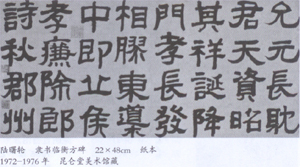 允元長耽
君天資昭
其祥誕降
門孝長發
相膠東導
中即丘侯
孝廉除郎
詩秋郡州
陆曙轮 隶书临衡方碑 22×48cm 纸本
1972-1976年 昆仑堂美术馆藏